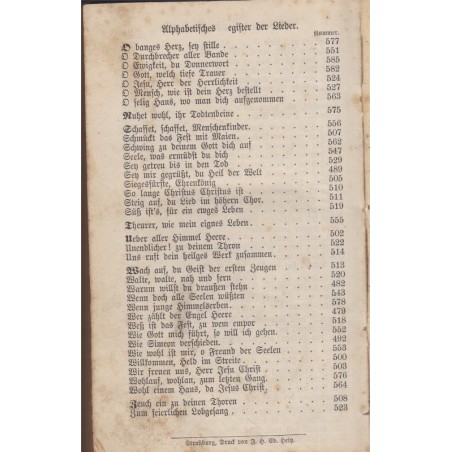 Alphabetisches egister der Lieder.
Nummer.
O banges Herz, sey stille 577
O Durchbrecher aller Bande 551
O Ewigkeit, du Donnerwort 585
O Gott, welch tiefe Trauer 582
O Jesu, Herr der Herrlichkeit 524
O Mensch, wie ist dein Herz bestellt 527
O selig Haus, wo man dich aufgenommen 563
Ruhet wohl, ihr Todtenbeine 575
Schaffet, schaffet, Menschenkinder 556
Schmückt das Fest mit Maien 507
Schwing zu deinem Gott dich auf 562
Seele, was ermüdst du dich 547
Sey getreu bis in den Tod 529
Sey mir gegrüßt, du Heil der Welt 489
Siegesfürste, Ehrenkönig 505
So lange Christus Christus ist 510
Steig auf, du Lied im höhern Chor 511
Süß ist's, für ein ewges Leben 519
Theurer, wie mein eignes Leben 555
Ueber aller Himmel Heere 502
Unendlicher! zu deinem Thron 522
Uns ruft dein heilges Werk zusammen 514
Wach auf, du Geist der ersten Zeugen 513
Walte, walte, nah und fern 520
Warum willst du draußen stehn 482
Wenn doch alle Seelen wüßten 543
Wenn junge Himmelserben 578
Wer zählt der Engel Heere 479
Weß ist das Fest, zu wem empor 518
Wie Gott mich führt, so will ich gehen 552
Wie Simeon verschieden 492
Wie wohl ist mir, o Freund der Seelen 553
Willkommen, Held im Streite 500
Wir freuen uns, Herr Jesu Christ 503
Wohlauf, wohlan, zum letzten Gang 576
Wohl einem Haus, da Jesus Christ 564
Zeuch ein zu deinen Thoren 508
Zum feierlichen Lobgesang 523
Straßburg, Druck von F. H. Ed. Heitz.